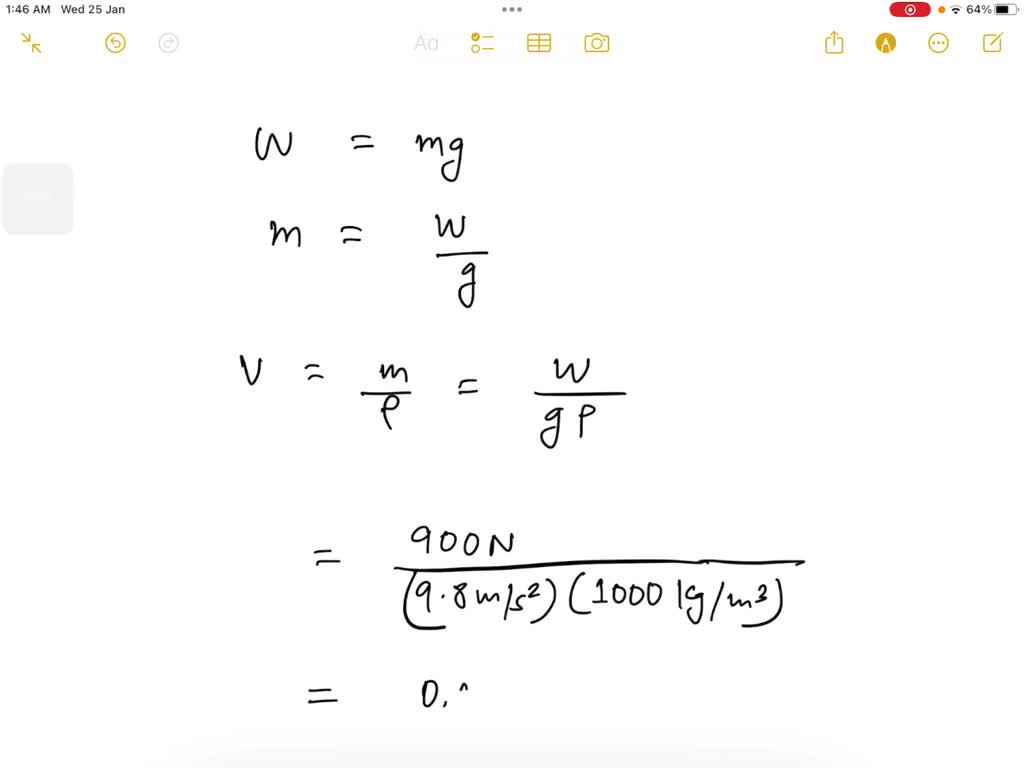 1:46 AM Wed 25 Jan
64%
Aa
W = mg
m = W/g
V = m/ρ = W/gρ
= 900N/(9.8m/s²)(1000 kg/m³)
= 0.